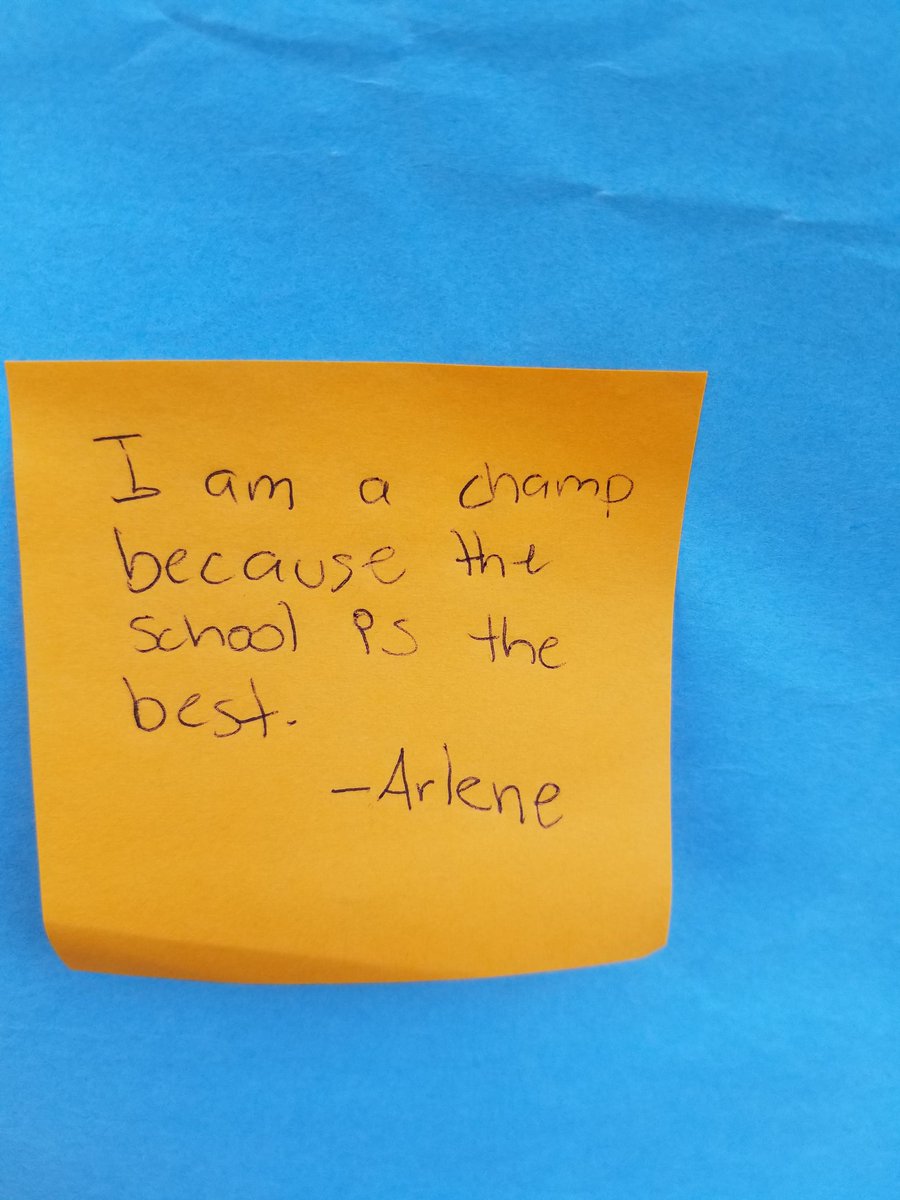 I am a champ
because the
school is the
best.
-Arlene